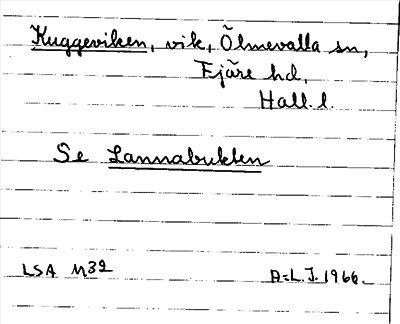 Kuggeviken, vik, Ölmevalla sn,
Fjäre hd,
Hall. l.
Se Lannabukten
LSA M39
A=L.J. 1966.